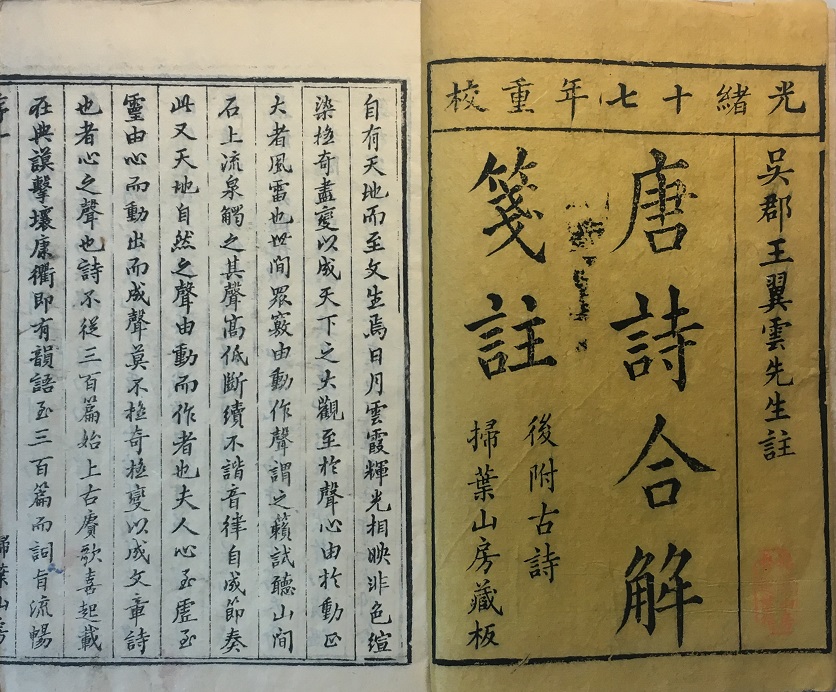 光緒十七年重校
吳郡王翼雲先生註
唐詩合解
箋註
後附古詩
掃葉山房藏板
自有天地而至文生焉日月雲霞輝光相映非色絢
染極奇盡變以成天下之大觀至於聲心由於動正
大者風雷也世間眾竅由動作聲謂之籟試聽山間
石上流泉觸之其聲高低斷續不諧音律自成節奏
此又天地自然之聲由動而作者也夫人心至虛至
靈由心而動出而成聲莫不極奇極變以成文章詩
也者心之聲也詩不從三百篇始上古賡歌喜起載
在典謨擊壤康衢即有韻語至三百篇而詞旨流暢
序一
掃葉山房